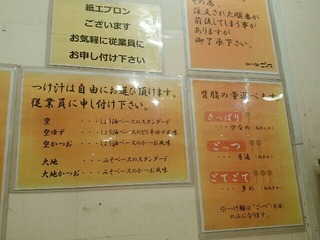 紙エプロン
ございます
お気軽に従業員に
お申し付け下さい。
注文された順番が
前後してしまう事が
ありますが
御了承下さい。
つけ汁は自由にお選び頂けます。
従業員に申し付け下さい。
空 ・・・・しょう油ベースのスタンダード
空ゆず ・・・・しょう油ベースのピリ辛ゆず風味
空かつお ・・・・しょう油ベースのかつお風味
大地 ・・・・みそベースのスタンダード
大地かつお ・・・・みそベースのかつお風味
背脂の量選べます
さっぱり
・・・少なめ
ごっつ
・・・普通
こてこて
・・・多め
※つけ麺は"ごっつ"(普通)
のみになります。